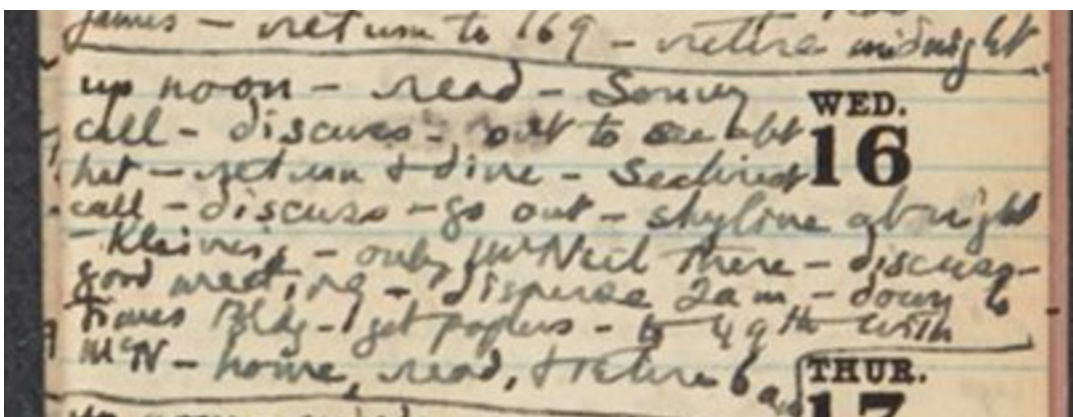 James – return to 169 – retire midnight.
up noon – read – Sonny
WED.
call – discuss – out to see abt
16
het – return & dine –
call – discuss – go out – skyline at night
– Kleiner's – only McNeil there – discuss –
good meeting – disperse 2 a m – down to
Times Bldg – get papers – to 49th with
McN – home, read, & retire 6 a
THUR.
17